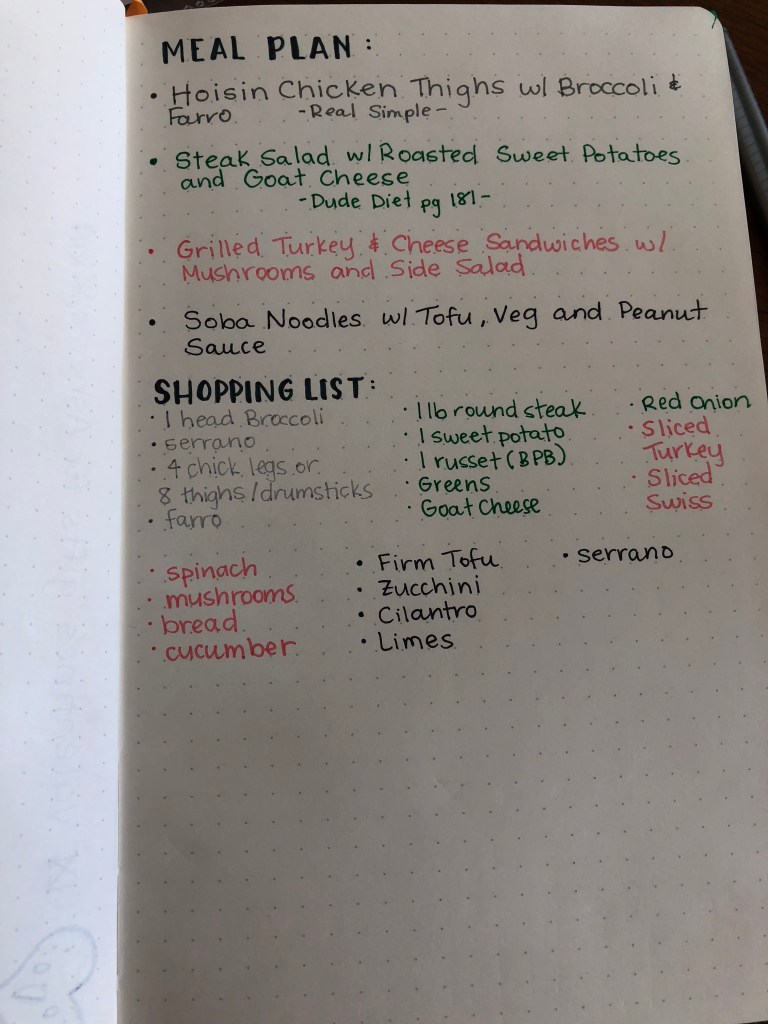 MEAL PLAN:
• Hoisin Chicken Thighs w/ Broccoli &
Farro -Real Simple-
• Steak Salad w/ Roasted Sweet Potatoes
and Goat Cheese
-Dude Diet pg 181-
• Grilled Turkey & Cheese Sandwiches w/
Mushrooms and Side Salad
• Soba Noodles w/ Tofu, Veg and Peanut
Sauce
SHOPPING LIST:
• 1 head Broccoli
• serrano
• 4 chick legs or
8 thighs/drumsticks
• farro
• 1 lb round steak
• 1 sweet potato
• 1 russet (BPB)
• Greens
• Goat Cheese
• Red Onion
• Sliced
Turkey
• Sliced
Swiss
• spinach
• mushrooms
• bread
• cucumber
• Firm Tofu
• Zucchini
• Cilantro
• Limes
• serrano